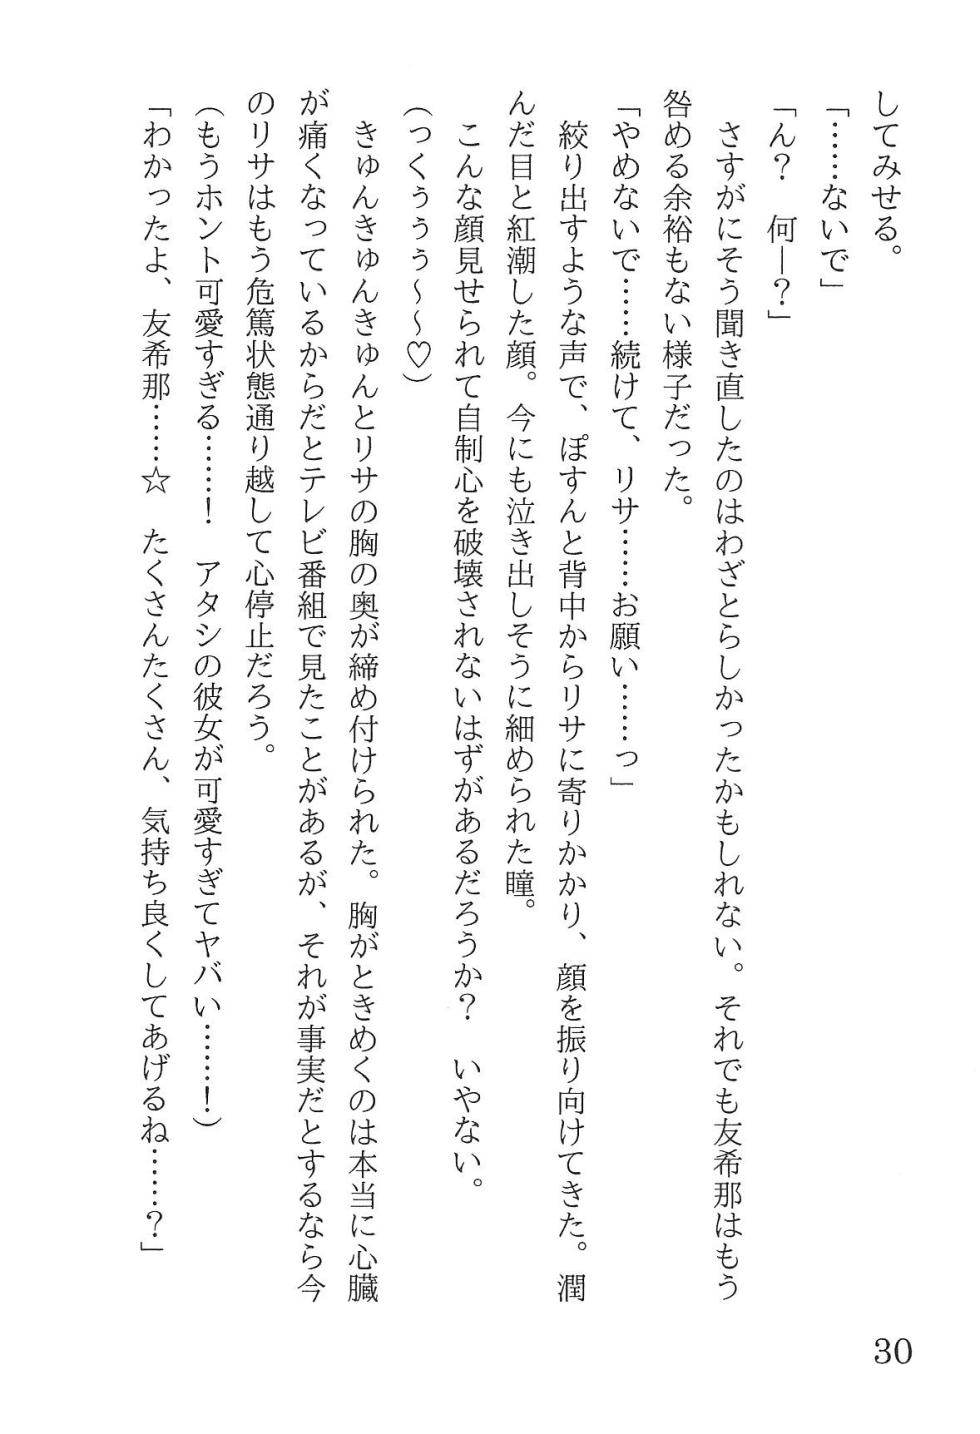 してみせる。
「……ないで」
「ん？　何―？」
　さすがにそう聞き直したのはわざとらしかったかもしれない。それでも友希那はもう
咎める余裕もない様子だった。
「やめないで……続けて、リサ……お願い……っ」
　絞り出すような声で、ぽすんと背中からリサに寄りかかり、顔を振り向けてきた。潤
んだ目と紅潮した顔。今にも泣き出しそうに細められた瞳。
　こんな顔見せられて自制心を破壊されないはずがあるだろうか？　いやない。
（っくぅぅぅ～～♡）
　きゅんきゅんきゅんとリサの胸の奥が締め付けられた。胸がときめくのは本当に心臓
が痛くなっているからだとテレビ番組で見たことがあるが、それが事実だとするなら今
のリサはもう危篤状態通り越して心停止だろう。
（もうホント可愛すぎる……！　アタシの彼女が可愛すぎてヤバい……！）
「わかったよ、友希那……☆　たくさんたくさん、気持ち良くしてあげるね……？」
30